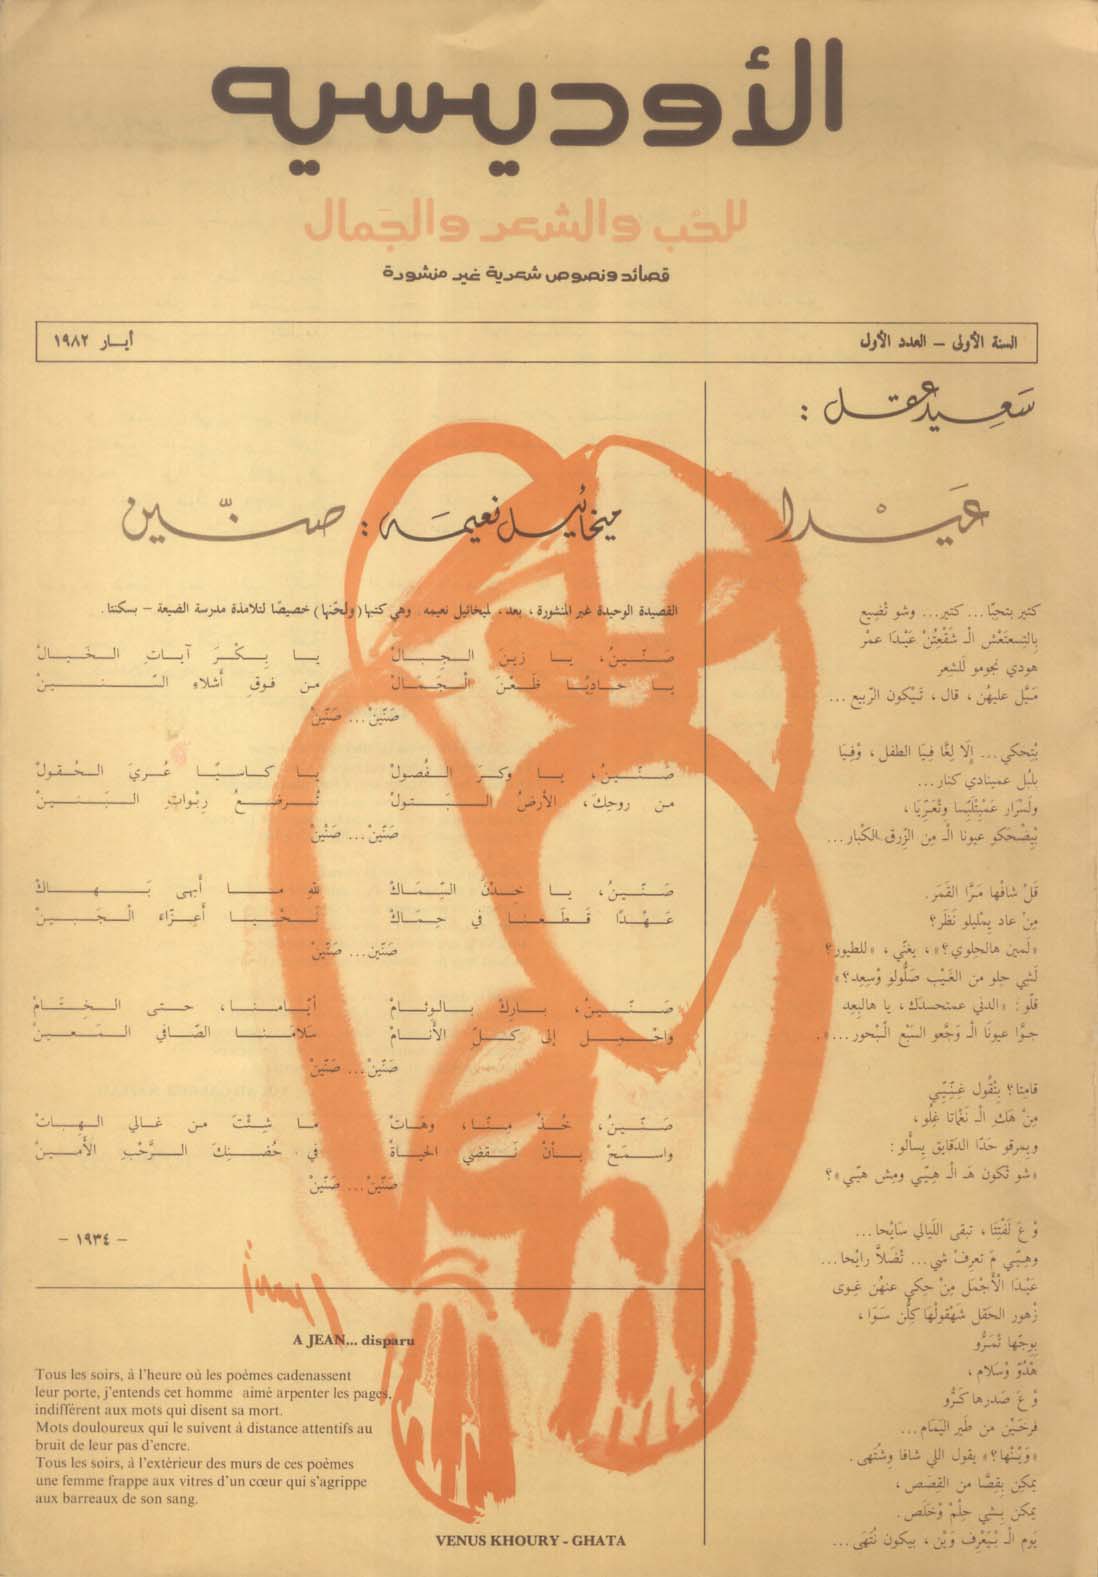 الأوديسيه
للحُب والشعر والجَمال
قصائد ونصوص شعرية غير منشورة
السنة الأولى – العدد الأول
أيــار ١٩٨٢
سَعِيد عقل :
عَيْدا
كتير بتحبّا... كتير... وشو تْضِيع
بِالتِسعتعْش الْـ شقْعِتُنْ عَيْدَا عمْر
هودي نجومو لَلشعر
مَيَّل عليهُن ، قال ، تَيْكون الرّبيع ...
بْتِحكي ... إلَا لِغَّا فِيَا الطفل ، وْفِيَا
بلبُل عمينادي كنار...
ولسْرار عَمْبِتْلَبِّسا وتْعَرِّيَا ،
بْيِضْحَكو عيونا الْـ مِن الزِّرق الكْبار...
قَلْ شافْها مَرَّا القمَر.
مِنْ عاد بِمْليلو نَظَر؟
«لَمين هالحِلوي؟» ، يغنّي ، «للطيور؟
لَشي حلو من الغَيْب صَلُّولو وْسِعِد؟»
قلّو : «الدني عمتحسدك، يا هالبِعِد
جوَّا عيونَا الْـ وَجَّعو السَبْع الْبْحور...».
قامِتا؟ بِتْقُول غِنِّيِّي
مِنْ هَك الْـ نَغْماتا غِلُو ،
ويمرقو حَدَّا الدقايق يِسألو :
«شو تْكون هَـ الْـ هِيِّي ومِش هِيِّي»؟
وْ عَ لَفْتِتَا ، تبقى اللّيالي سَايْحا...
وهِيِّي مَ تعرِفْ شي... تْضَلاَّ رايْحا...
عَيْدَا الْأَجْمَل مِنْ حِكي عنهُن غِوى
زْهور الحَقل شَهْقولْها كِلُّن سَوَا ،
بِوِجّها تْمَرُّو
هْدُوّ وْسَلام ،
وْ عَ صَدرها كَرُّو
فرخَيْن من طَير اليَمام...
«وَيْنها؟» يقول اللي شافا وِشْتَهى.
يمكِن بقِصَّا من القِصَص ،
يمكن بشي حِلْمْ وْخَلَص.
يَوم الْـ بْيَعْرِف وَيْن ، بيكون نْتَهَى...
ميخائيل نعيمه : صنّين
القصيدة الوحيدة غير المنشورة ، بعد ، لميخائيل نعيمه. وهي كتبها (ولحّنها) خصيصًا لتلامذة مدرسة الضيعة – بسكنتا.
صَنّينُ، يا زينَ الجبالْ يا بِكْرَ آياتِ الخَيالْ
يا حاديًا ظَعْنَ الْجَمالْ من فوق أشلاءِ السّنينْ
صَنّينْ... صَنّينْ
صَنّينُ، يا وكرَ الفُصولْ يا كاسيًا عُريَ الحُقولْ
من روحِكَ، الأرضُ البَتولْ تُرضعُ رِبْواتِ البَنينْ
صَنّينْ... صَنّينْ
صَنّينُ، يا خِدْنَ السِّمَاكْ للهِ ما أبهى بَهاكْ
عَهْدًا قَطَعنا في حِمَاكْ نَحْيا أعِزّاء الْجَبينْ
صَنّين... صَنّينْ
صَنّينُ، بارِكْ بالوِئامْ أيّامنا، حتى الخِتَامْ
واحْمِلْ إلى كلِّ الأنامْ سلامَنا الصّافي المَعينْ
صَنّينْ... صَنّينْ
صَنّينُ، خُذْ مِنّا، وهَاتْ ما شِئْتَ من غالي الهِباتْ
واسمَحْ بأنْ نَقضي الحَياةْ في حُضنِكَ الرَّحْبِ الأمينْ
صَنّينْ... صَنّينْ
– ١٩٣٤ –
A JEAN... disparu
Tous les soirs, à l'heure où les poèmes cadenassent
leur porte, j'entends cet homme aimé arpenter les pages,
indifférent aux mots qui disent sa mort.
Mots douloureux qui le suivent à distance attentifs au
bruit de leur pas d'encre.
Tous les soirs, à l'extérieur des murs de ces poèmes
une femme frappe aux vitres d'un cœur qui s'agrippe
aux barreaux de son sang.
VENUS KHOURY - GHATA